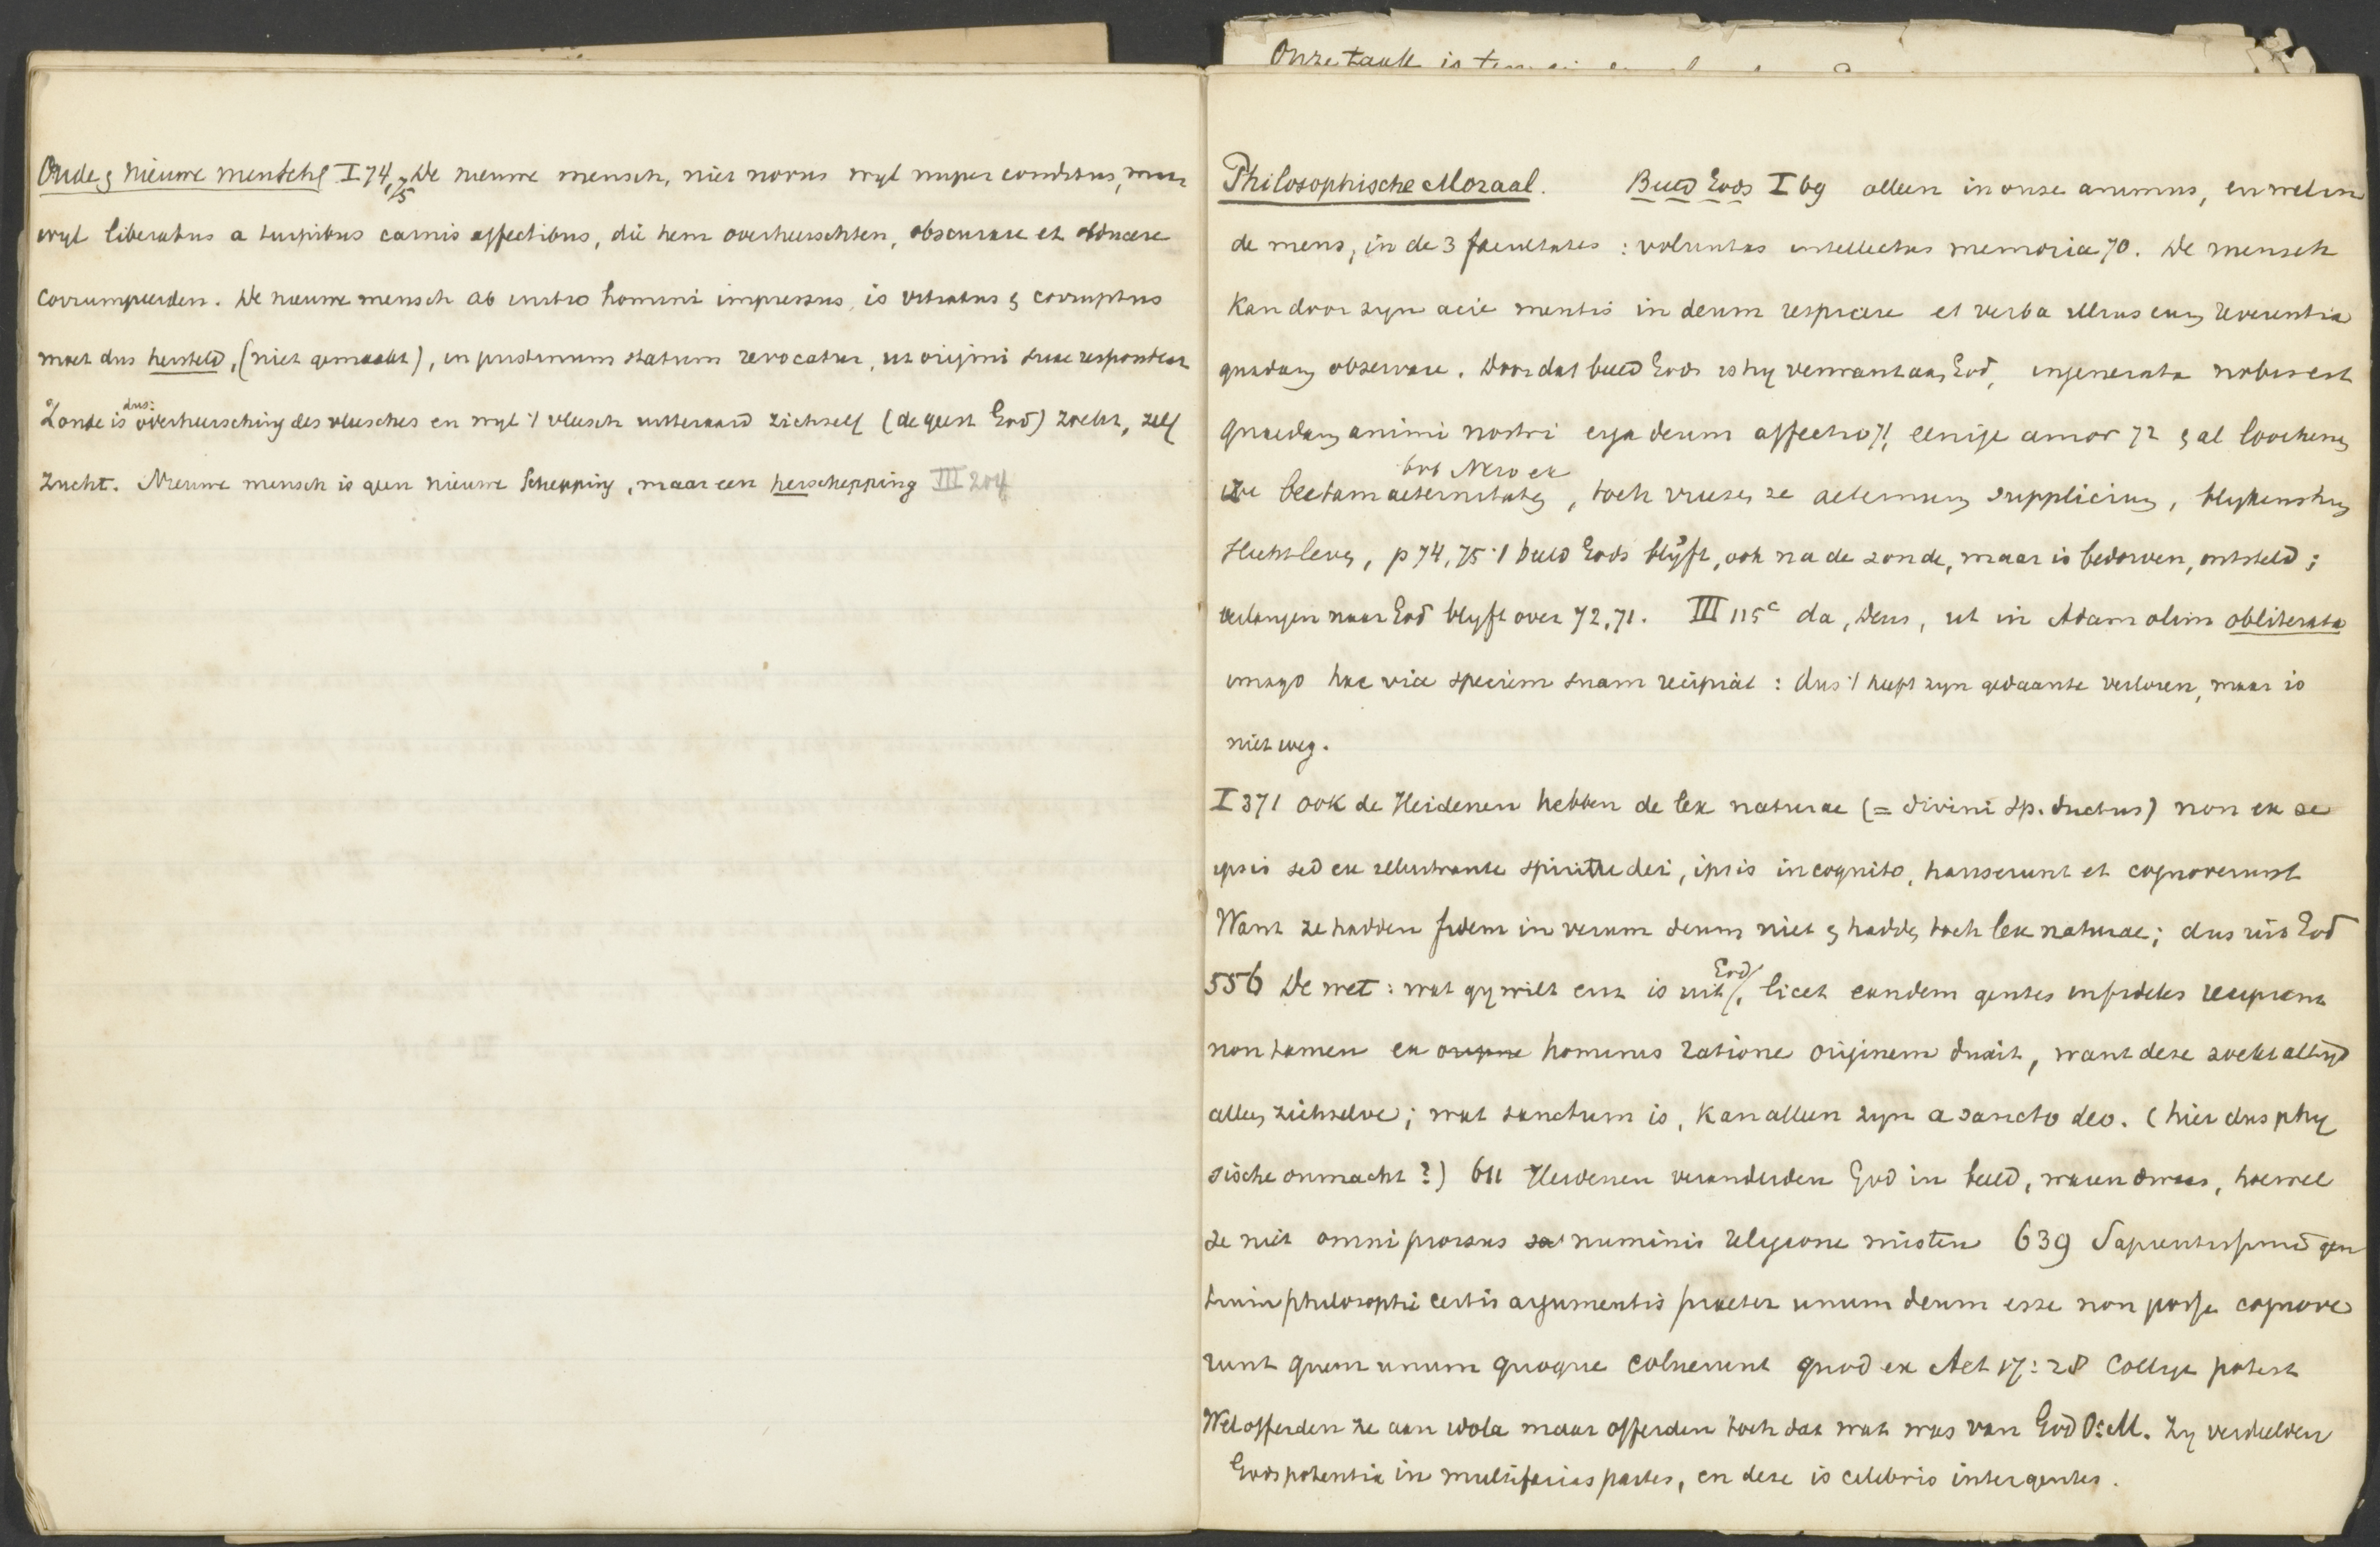 Onze taak is
Oude & Nieuwe mensch I 74, 75 De nieuwe mensch, niet novus wyl nuper conditus, maar
wyl liberatus a turpibus carnis affectibus, die hem overheerschten, obscurare et obducere
corrumpeerden. De nieuwe mensch ab initio homini impressus, is vitiatus & corruptus
moet dus hersteld, (niet gemaakt), in pristinum statum revocatur, ut origini suae respondeat
Zonde is dus: overheersching des vleesches en wyl 't vleesch uitteraard zichzelf (de geest God) zoekt, zelf
zucht. Nieuwe mensch is geen nieuwe Schepping, maar een herschepping III 204
Philosophische Moraal. Beeld Gods I 69 alleen in onze animus, en wel in
de mens, in de 3 facultates: voluntas intellectus memoria 70. De mensch
kan door zyn acie mentis in deum respicere et verba illius cum reverentia
quadam observare. Door dat beeld Gods is hy verwant aan God, ingenerata nobis est
quaedam animi nostri erga deum affectio 71, eenige amor 72 & al loochenen
ze beatam aeternitatem, toch vreezen ze aeternum supplicium, blykens hun
slecht leven, p 74, 75 't beeld Gods blyft, ook na de zonde, maar is bedorven, ontsteld;
verlangen naar God blyft over 72, 71. III 115c da, Deus, ut in Adam olim obliterata
imago hac vice speciem suam recipiat: dus 't heeft zyn gedaante verloren, maar is
niet weg.
I 371 ook de Heidenen hebben de lex naturae (= divini sp. ductus) non ex se
ipsis sed ex illustrante spiritu dei, ipsis incognito, hauserunt et cognoverunt
Want ze hadden fidem in verum deum niet & hadden toch lex naturae; dus uit God
556 De wet: wat gy wilt enz is uit God, licet eandem gentes infideles recipiant
non tamen ex origine hominis ratione originem duxit, want deze zoekt altyd
alleen zichzelve; wat sanctum is, kan alleen zyn a sancto deo. (hier dus phy
sische onmacht?) 611 Heidenen veranderden God in beeld, waren dwaas, hoewel
ze niet omni prorsus numinis religione misten 639 Sapientissimi gen
tium philosophi certis argumentis praeter unum deum esse non posse cognove
runt quem unum quoque coluerunt quod ex Act 17:28 colligi potest
Wel offerden ze aan idola maar offerden toch dat wat was van God O.M. Zy verdeelden
Gods potentia in multifarias partes, en deze is celebris inter gentes.